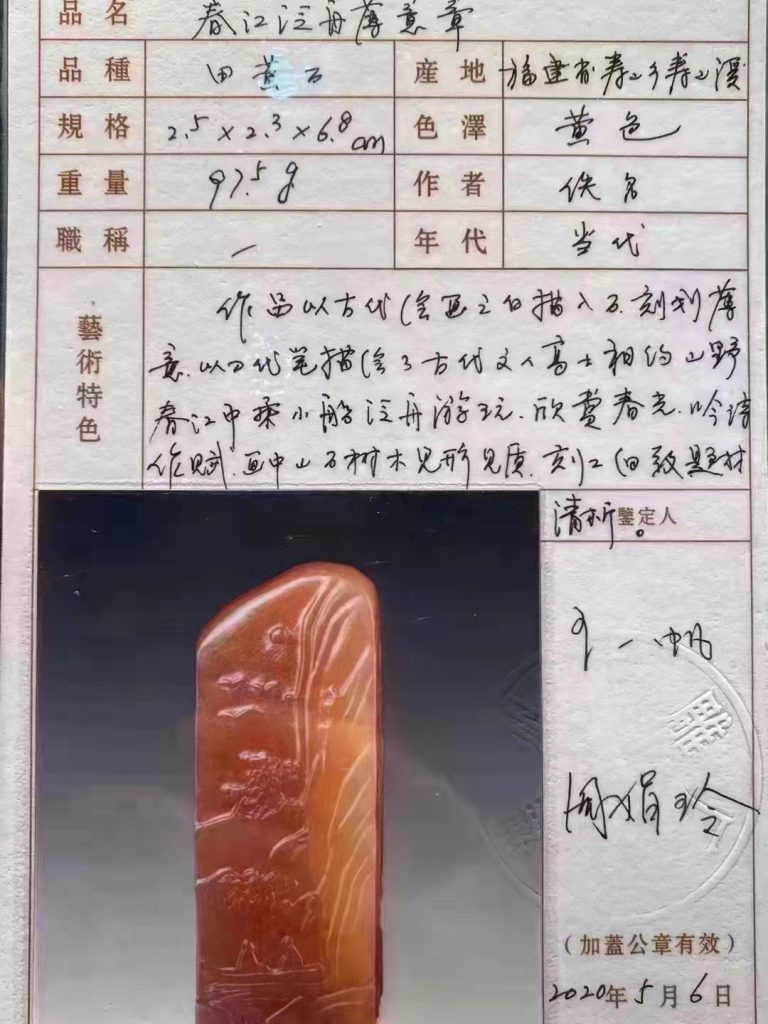 品名 春江泛舟薄意章
品種 田黄石 産地 福建省寿山乡寿山溪
規格 2.5×2.3×6.8cm 色澤 黄色
重量 97.5g 作者 佚名
職稱 一 年代 当代
藝術特色
作品以古代绘画之白描入石.刻划薄
意.以刀代笔描绘了古代文人高士相约山野
春江中乘小船泛舟游玩.欣赏春光.吟诗
作赋.画中山石树木见形见质.刻工细致题材
清晰。
鑒定人
一帆
周娟玲
（加蓋公章有效）
2020年5月6日